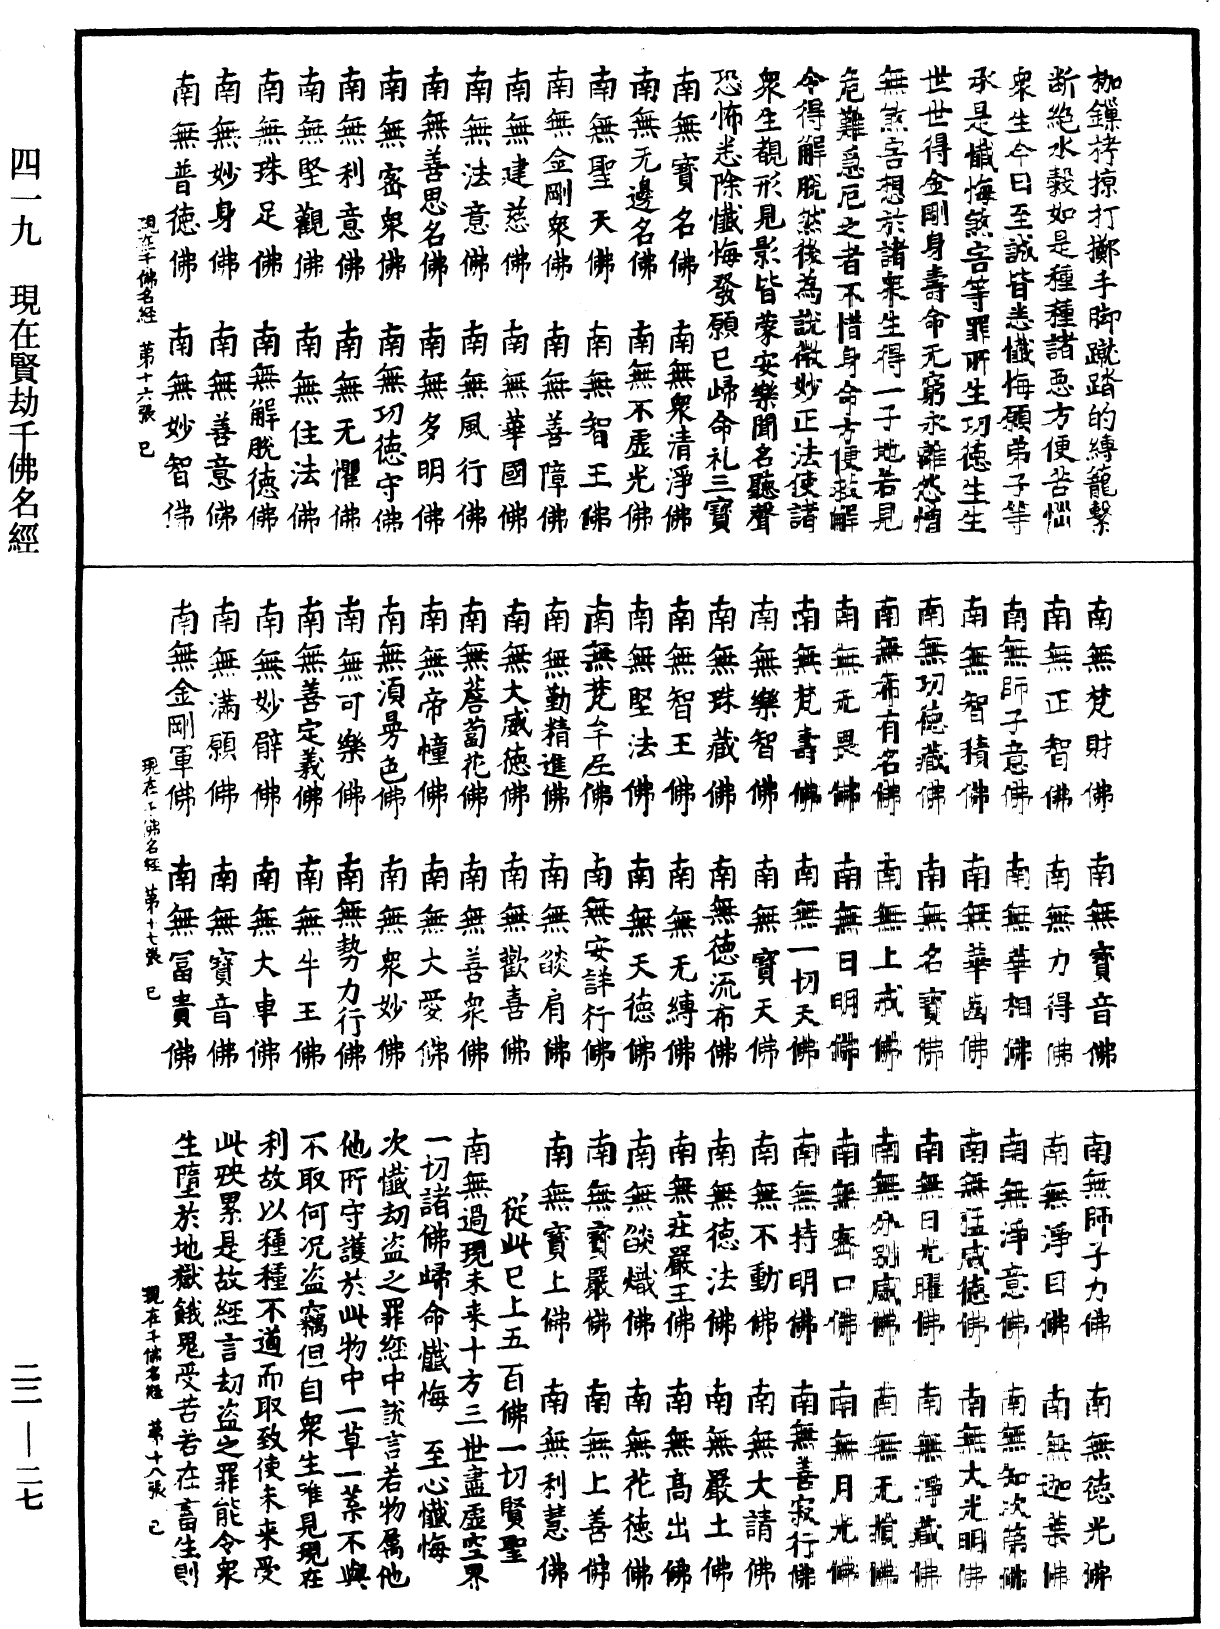 四一九　現在賢劫千佛名經
二二—二七
枷鏁拷掠打擲手脚蹴踏的縛籠繫
断絶水穀如是種種諸惡方便苦惱
衆生今日至誠皆悉懺悔願弟子等
承是懺悔煞害等罪所生功徳生生
世世得金剛身壽命无窮永離怨憎
無煞害想於諸衆生得一子地若見
危難急厄之者不惜身命方便救解
令得解脫然後為說微妙正法使諸
衆生覩形見影皆蒙安樂聞名聽聲
恐怖悉除懺悔發願已歸命礼三寶
南無寶名佛　南無衆清淨佛
南無无邊名佛　南無不虛光佛
南無聖天佛　南無智王佛
南無金剛衆佛　南無善障佛
南無建慈佛　南無華國佛
南無法意佛　南無風行佛
南無善思名佛　南無多明佛
南無密衆佛　南無功徳守佛
南無利意佛　南無无懼佛
南無堅觀佛　南無住法佛
南無珠足佛　南無解脫徳佛
南無妙身佛　南無善意佛
南無普徳佛　南無妙智佛
現在千佛名經　第十六張　已
南無梵財佛　南無寶音佛
南無正智佛　南無力得佛
南無師子意佛　南無華相佛
南無智積佛　南無華齒佛
南無功徳藏佛　南無名寶佛
南無希有名佛　南無上戒佛
南無无畏佛　南無日明佛
南無梵壽佛　南無一切天佛
南無樂智佛　南無寶天佛
南無珠藏佛　南無徳流布佛
南無智王佛　南無无縛佛
南無堅法佛　南無天徳佛
南無梵牟尼佛　南無安詳行佛
南無勤精進佛　南無㷔肩佛
南無大威徳佛　南無歡喜佛
南無薝蔔花佛　南無善衆佛
南無帝幢佛　南無大愛佛
南無須曼色佛　南無衆妙佛
南無可樂佛　南無勢力行佛
南無善定義佛　南無牛王佛
南無妙臂佛　南無大車佛
南無滿願佛　南無寶音佛
南無金剛軍佛　南無冨貴佛
現在千佛名經　第十七張　已
南無師子力佛　南無徳光佛
南無淨目佛　南無迦葉佛
南無淨意佛　南無知次第佛
南無猛威徳佛　南無大光明佛
南無日光曜佛　南無淨藏佛
南無分別威佛　南無无損佛
南無密口佛　南無月光佛
南無持明佛　南無善寂行佛
南無不動佛　南無大請佛
南無徳法佛　南無嚴土佛
南無莊嚴王佛　南無高出佛
南無㷔熾佛　南無花徳佛
南無寶嚴佛　南無上善佛
南無寶上佛　南無利慧佛
從此已上五百佛一切賢聖
南無過現未来十方三世盡虛空界
一切諸佛歸命懺悔　至心懺悔
次懺劫盜之罪經中說言若物屬他
他所守護於此物中一草一葉不與
不取何況盜竊但自衆生唯見現在
利故以種種不道而取致使未来受
此殃累是故經言刼盜之罪能令衆
生墮於地獄餓鬼受苦若在畜生則
現在千佛名經　第十八張　已